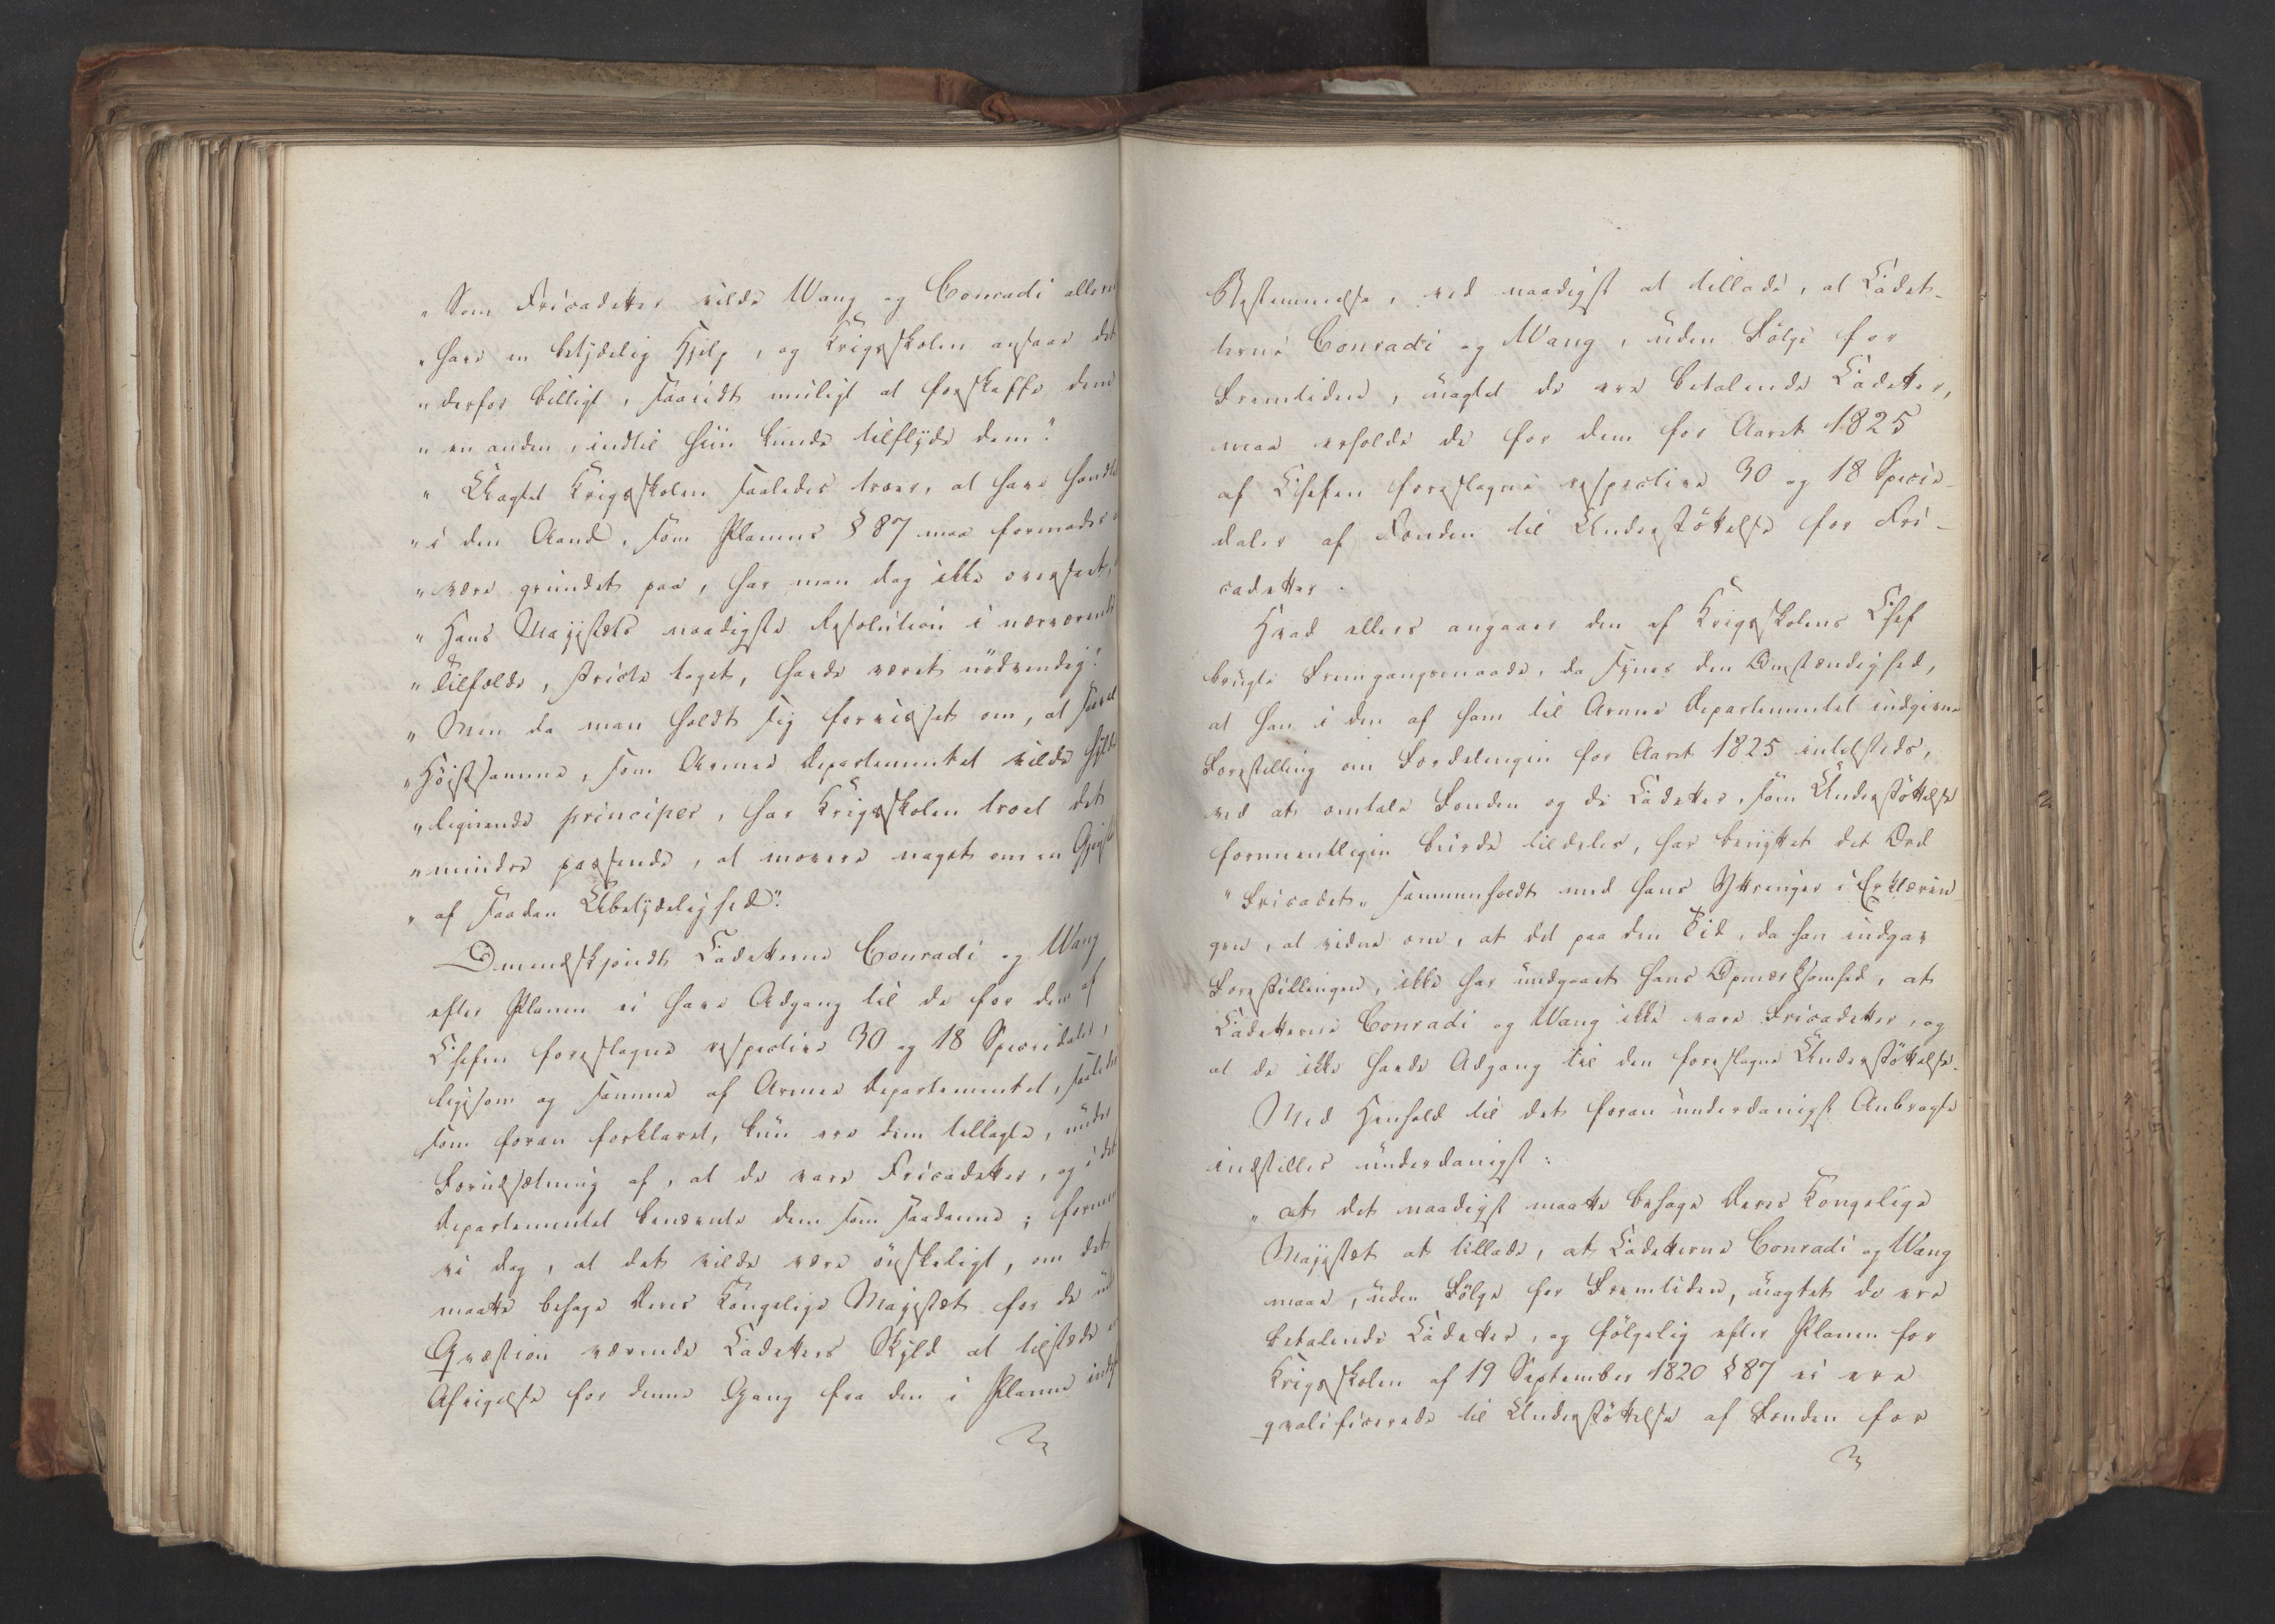 "Som Fricadetter vilde Wang og Conradi allere
"have en betydelig Hjelp, og Krigsskolen ansaae det
"derfor billigt, saavidt muligt at forskaffe dem
"en anden, indtil hiin kunde tilflyde dem."
"Uagtet Krigsskolen saaledes troer, at have handlet
"i den Aand, som Planens § 87 maa formodes
"være grundet paa, har man dog ikke overseet,
"Hans Majestæts naadigste Resolution i nærværende
"Tilfælde, stricte taget, havde været nödvendig.
"Men da man holdt sig forvisset om, at saavel
"Höistsamme, som Armee Departementet vilde hylde
"lignende principer, har Krigsskolen troet det
"mindre passende, at movere noget om en Gjenst
"af saadan Ubetydelighed".
Omendskjöndt Cadetterne Conradi og Wang
efter Planen ei have Adgang til de for dem af
Chefen foreslagne respective 30 og 18 Speciedaler,
ligesom og samme af Armee Departementet, saaledes
som foran forklaret, kun ere dem tillagte, under
Forudsætning af, at de vare Fricadetter, og i det
Departementet benævnte dem som saadanne; formene
vi dog, at det vilde være önskeligt, om det
maatte behage Deres Kongelige Majestæt for de
Qvæstion værende Cadetters Skyld at tilstede
Afvigelse for denne Gang fra den i Planen
Bestemmelse, ved naadigst at tillade, at Cadet-
terne Conradi og Wang, uden Fölge for
Fremtiden, uagtet de ere betalende Cadetter,
maa erholde de for dem for Aaret 1825
af Chefen foreslagne respective 30 og 18 Specie-
daler af Fonden til Understöttelse for Fri-
cadetter.
Hvad ellers angaaer den af Krigsskolens Chef
brugte Fremgangsmaade, da synes den Omstændighed,
at han i den af ham til Armee Departementet indgivne
Forestilling om Fordelingen for Aaret 1825 intetsteds,
ved at omtale Fonden og de Cadetter, som Understöttelse
formeentligen burde tildeles, har benyttet det Ord
"Fricadet" sammenholdt med hans Yttringer i Erklærin-
gen, at vidne om, at det paa den Tid, da han indgav
Forestillingen, ikke har undgaaet hans Opmærksomhed, at
Cadetterne Conradi og Wang ikke vare Fricadetter, og
at de ikke havde Adgang til den foreslagne Understöttelse.
Med Henhold til det foran underdanigst Anbragte
indstilles underdanigst:
"at det naadigst maatte behage Deres Kongelige
Majestæt at tillade, at Cadetterne Conradi og Wang
maae, uden Fölge for Fremtiden, uagtet de ere
betalende Cadetter, og fölgelig efter Planen for
Krigsskolen af 19 September 1820 § 87 ei ere
qvalificerede til Understöttelse af Fonden for